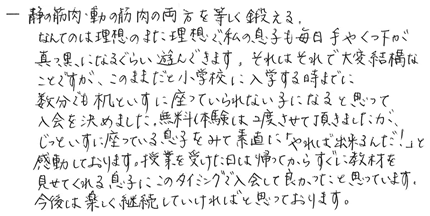 一 静の筋肉・動の筋肉の両方を等しく鍛える。
なんてのは理想のまた理想で、私の息子も毎日手やくつ下が
真っ黒になるぐらい遊んできます。それはそれで大変結構な
ことですが、このままだと小学校に入学する時までに
数分でも机といすに座っていられない子になると思って
入会を決めました。無料体験は2度させて頂きましたが、
じっといすに座っている息子をみて素直に「やれば出来るんだ!」と
感動しております。授業を受けた日は帰ってからすぐに教材を
見せてくれる息子にこのタイミングで入会して良かったと思っています。
今後は楽しく継続していければと思っております。